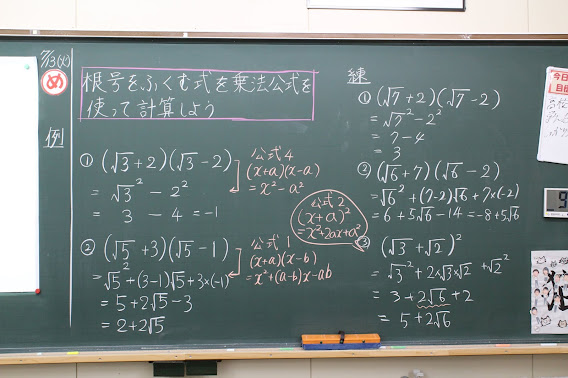 7/13(火)
め
根号をふくむ式を乗法公式を
使って計算しよう
例
① (√3+2)(√3-2)
= √3² - 2²
= 3 - 4 = -1
公式4
(x+a)(x-a)
= x²-a²
② (√5+3)(√5-1)
= √5²+(3-1)√5+3×(-1)
= 5+2√5-3
= 2+2√5
公式1
(x+a)(x-b)
= x²+(a-b)x-ab
公式2
(x+a)²
= x²+2ax+a²
練
① (√7+2)(√7-2)
= √7²-2²
= 7-4
= 3
② (√6+7)(√6-2)
= √6²+(7-2)√6+7×(-2)
= 6+5√6-14=-8+5√6
③ (√3+√2)²
= √3²+2×√3×√2+√2²
= 3+2√6+2
= 5+2√6
今日
目